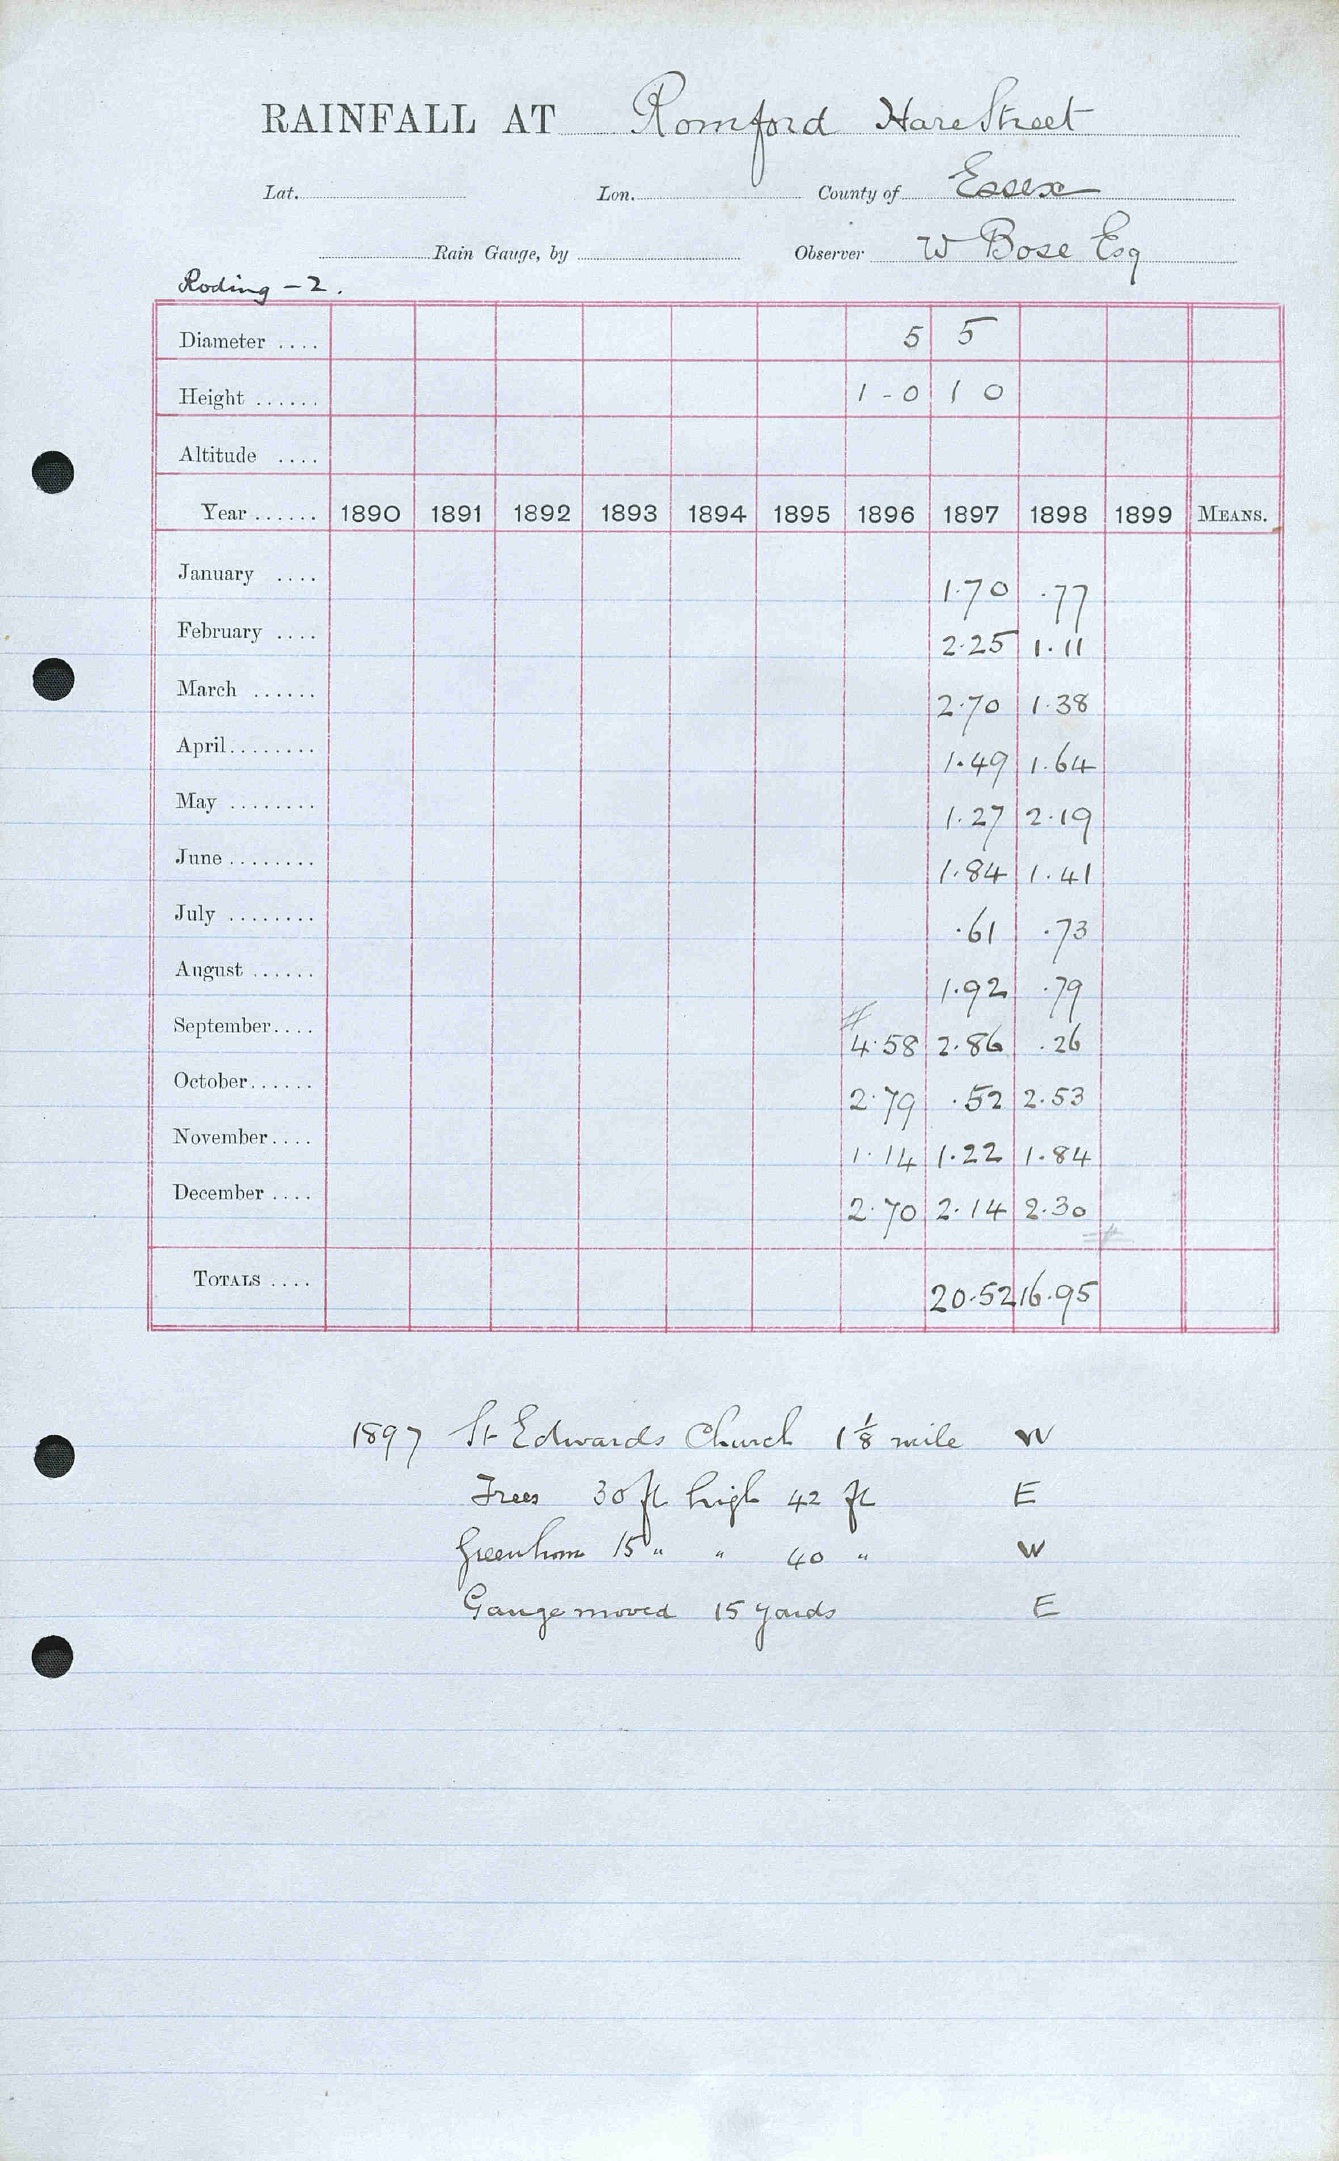 RAINFALL AT Romford Hare Street
Lat. Lon. County of Essex
Rain Gauge, by Observer W Bose Esq
Roding - 2.
Diameter .... 5 5
Height ...... 1 - 0 1 0
Altitude ....
Year ...... 1890 1891 1892 1893 1894 1895 1896 1897 1898 1899 MEANS.
January .... 1.70 .77
February .... 2.25 1.11
March ...... 2.70 1.38
April........ 1.49 1.64
May ........ 1.27 2.19
June ........ 1.84 1.41
July ........ .61 .73
August ...... 1.92 .79
September.... # 4.58 2.86 .26
October...... 2.79 .52 2.53
November.... 1.14 1.22 1.84
December .... 2.70 2.14 2.30
#
TOTALS .... 20.52 16.95
1897 St Edwards Church 1 1/8 mile W
Trees 30 ft high 42 ft E
Greenhouse 15 " " 40 " W
Gauge moved 15 yards E